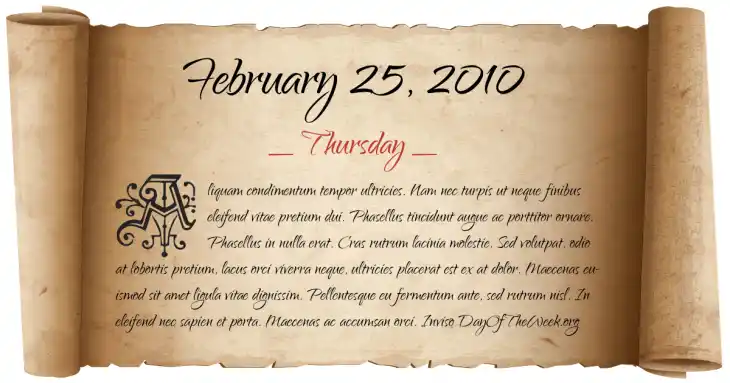 February 25, 2010
_ Thursday _
Aliquam condimentum tempor ultricies. Nam nec turpis ut neque finibus
eleifend vitae pretium dui. Phasellus tincidunt augue ac porttitor ornare.
Phasellus in nulla erat. Cras rutrum lacinia molestie. Sed volutpat, odio
at lobortis pretium, lacus orci viverra neque, ultricies placerat est ex at dolor. Maecenas eu-
ismod sit amet ligula vitae dignissim. Pellentesque eu fermentum ante, sed rutrum nisl. In
eleifend nec sapien et porta. Maecenas ac accumsan orci. Inviso DayOfTheWeek.org